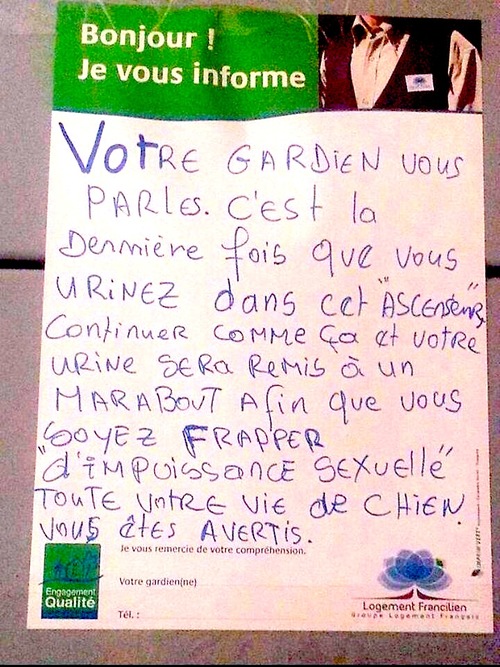 Bonjour !
Je vous informe
VOtRE GARDIEN VOUS
PARles. C'EST la
Dernière fois que vous
URiNEZ dans cet "ASCENSEUR"
Continuer COMME ça et votre
URiNE SERA Remis à un
MARABOUT Afin que vous
SOYEZ FRAPPER
"d'iMPUissanCE SEXUellé"
TOUTE VOTRE Vie de CHiEN.
VOUS êtES AVERTIS.
Je vous remercie de votre compréhension.
Votre gardien(ne)
Tél. :
Engagement
Qualité
Logement Francilien
Groupe Logement Français